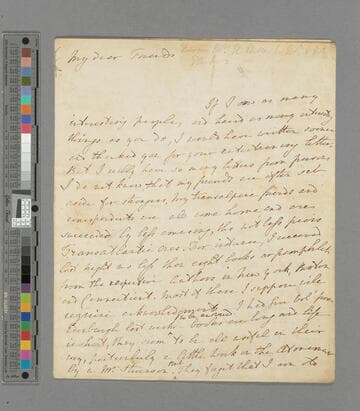 My dear Friends
If I saw as many
interesting people, and heard as many interest
things as you do, I would have written sooner
and thanked you for your entertaining letter.
But I really have so many letters from persons
I do not know that my friends are often set
aside for strangers, my transalpine friends and
correspondents are all come home and are
succeeded by less amusing, tho not less pious
Transatlantic ones. For instance, I received
last night no less than eight books or pamphlets
from the respective Authors in New York, Boston
and Connecticut. most of these I suppose will
require acknowledgments. I had five vol from
Edinburgh last week
books
long and life
is short, they seem to be all useful in their
way, particularly a little book on the Atonement
by a Mr
They forget that I am old